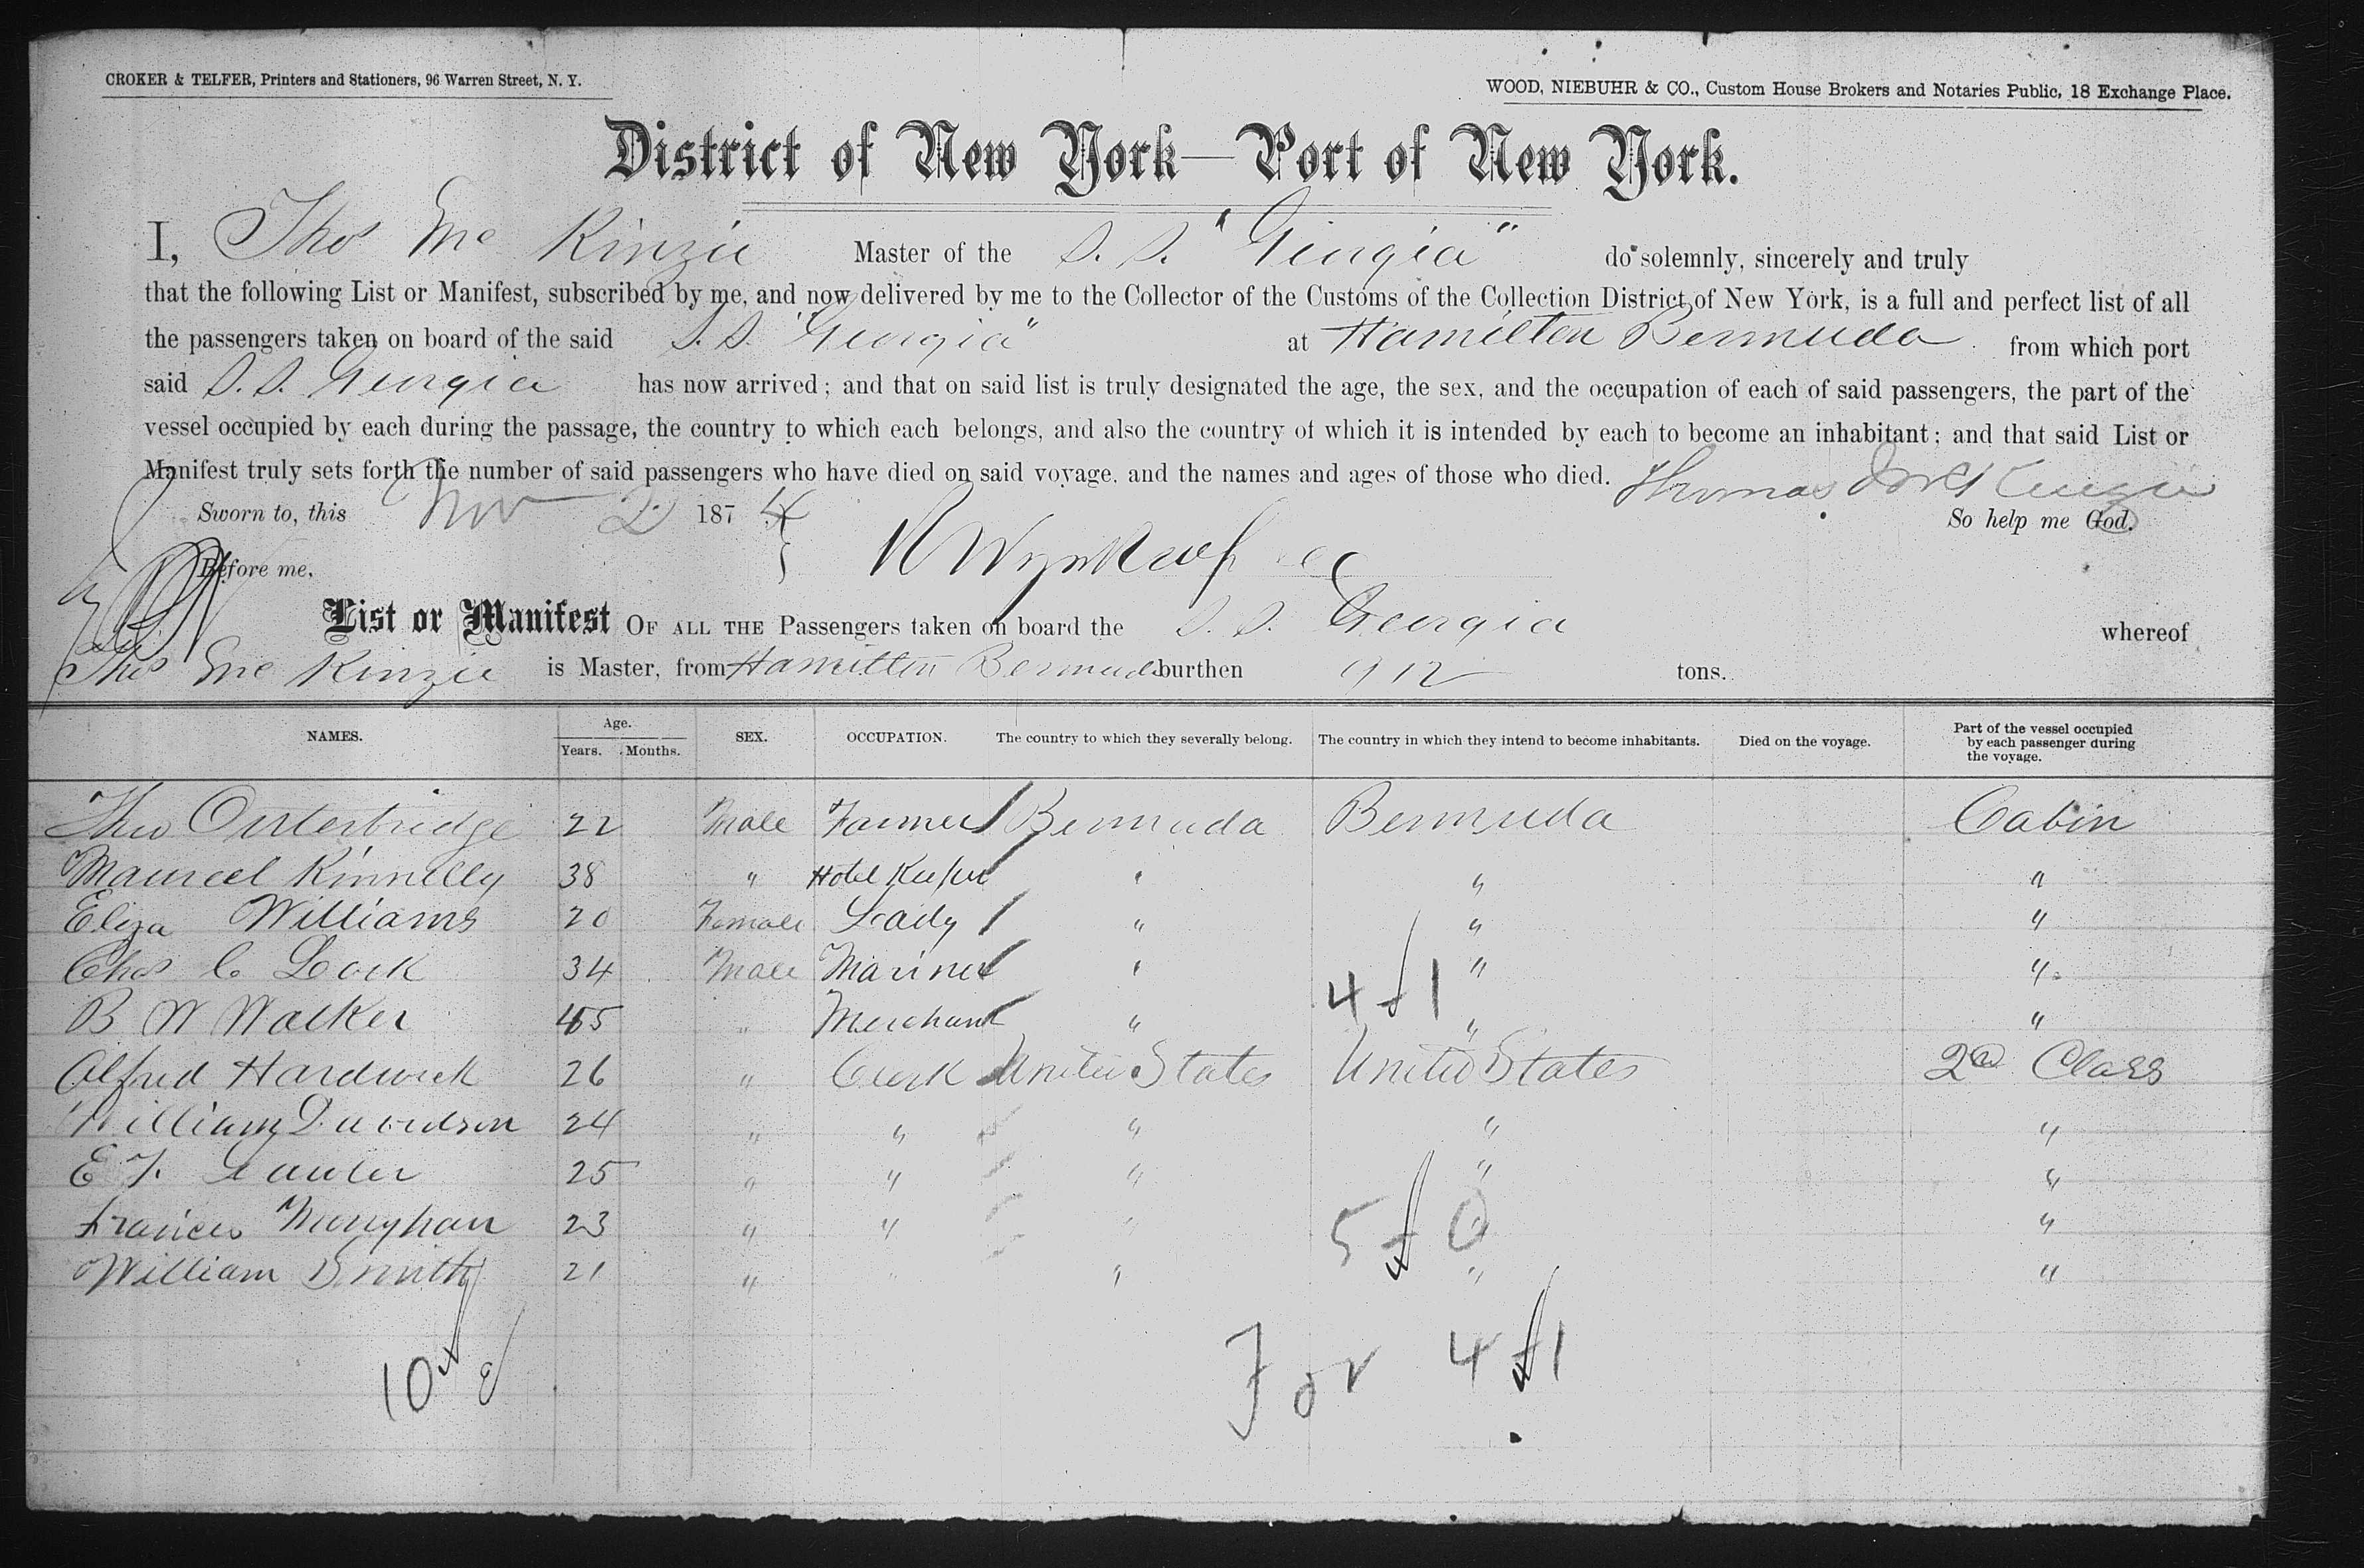 CROKER & TELFER, Printers and Stationers, 96 Warren Street, N. Y.
WOOD, NIEBUHR & CO., Custom House Brokers and Notaries Public, 18 Exchange Place.
District of New York—Port of New York.
I, Thos Mc Kinzie Master of the S. S. "Georgia" do solemnly, sincerely and truly
that the following List or Manifest, subscribed by me, and now delivered by me to the Collector of the Customs of the Collection District of New York, is a full and perfect list of all
the passengers taken on board of the said S. S. "Georgia" at Hamilton Bermuda from which port
said S. S. Georgia has now arrived; and that on said list is truly designated the age, the sex, and the occupation of each of said passengers, the part of the
vessel occupied by each during the passage, the country to which each belongs, and also the country of which it is intended by each to become an inhabitant; and that said List or
Manifest truly sets forth the number of said passengers who have died on said voyage, and the names and ages of those who died. Thomas
Sworn to, this Nov 2 1874 So help me God.
Before me,
List or Manifest OF ALL THE Passengers taken on board the S. S. Georgia whereof
Thos Mc Kinzie is Master, from Hamilton Bermuda burthen 912 tons.
NAMES. Age. Years. Months. SEX. OCCUPATION. The country to which they severally belong. The country in which they intend to become inhabitants. Died on the voyage. Part of the vessel occupied by each passenger during the voyage.
Theo Outerbridge 22 Male Farmer Bermuda Bermuda Cabin
Kinnelly 38 " Hotel Keeper " " "
Eliza Williams 20 Female Lady " " "
Chas C Lock 34 Male Mariner " " "
B W Walker 45 " Merchant " " "
4 1
Alfred Hardwick 26 " Clerk United States United States 2d Class
William Davidson 24 " " " " "
E F 25 " " " " "
Francis Monyhan 23 " " " " "
5 0
William Smith 21 " " " " "
10
For 4 1